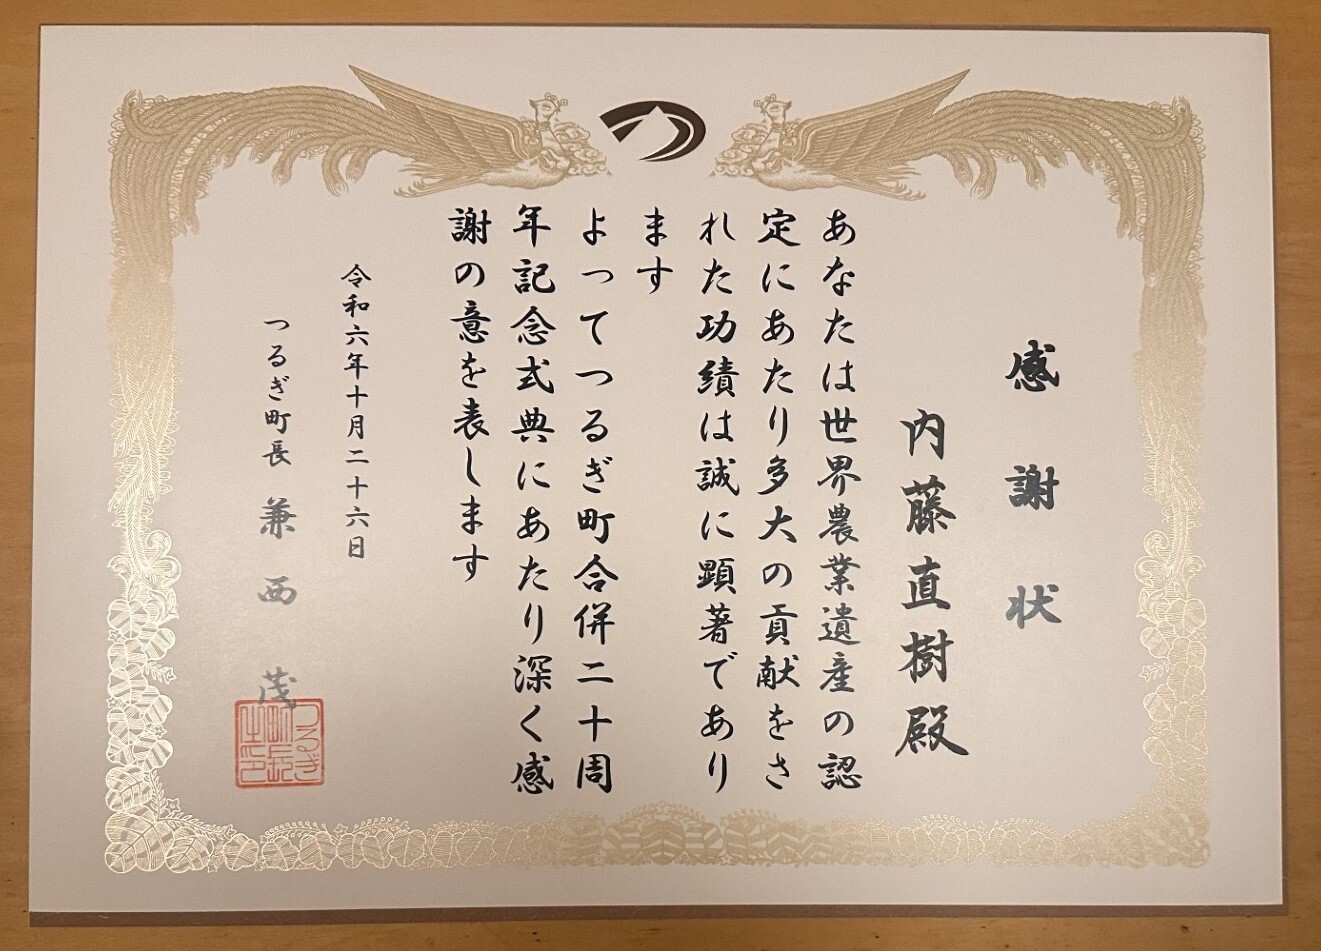 感謝状
内藤直樹殿
あなたは世界農業遺産の認
定にあたり多大の貢献をさ
れた功績は誠に顕著であり
ます
よってつるぎ町合併二十周
年記念式典にあたり深く感
謝の意を表します
令和六年十月二十六日
つるぎ町長 兼西茂
つるぎ
町長
之印